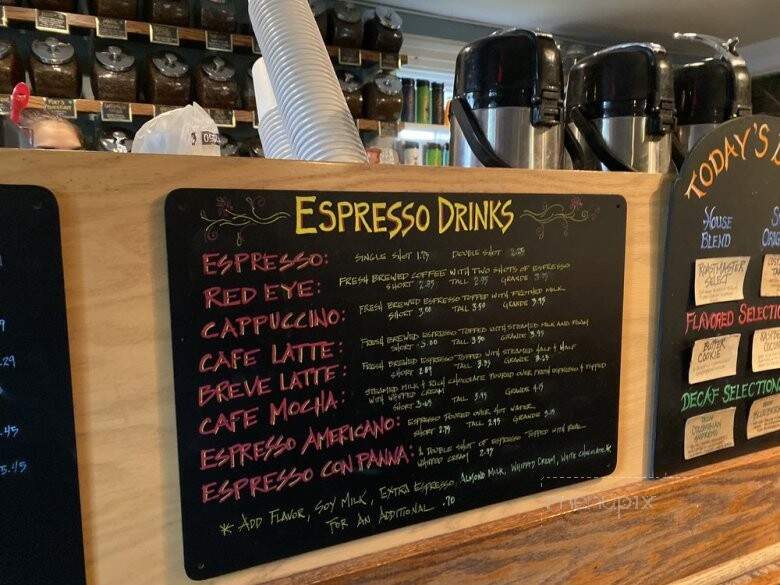 ESPRESSO DRINKS
ESPRESSO: SINGLE SHOT 1.75 DOUBLE SHOT 2.25
RED EYE: FRESH BREWED COFFEE WITH TWO SHOTS OF ESPRESSO
SHORT TALL GRANDE
CAPPUCCINO: FRESH BREWED ESPRESSO TOPPED WITH FROTHED MILK
SHORT 3.00 TALL 3.50 GRANDE 3.95
CAFE LATTE: FRESH BREWED ESPRESSO TOPPED WITH STEAMED MILK AND FOAM
SHORT 3.00 TALL 3.50 GRANDE 3.95
BREVE LATTE: FRESH BREWED ESPRESSO TOPPED WITH STEAMED HALF & HALF
SHORT TALL GRANDE
CAFE MOCHA: STEAMED MILK & RICH CHOCOLATE POURED OVER FRESH ESPRESSO & TOPPED
WITH WHIPPED CREAM
SHORT TALL GRANDE
ESPRESSO AMERICANO: ESPRESSO POURED OVER HOT WATER
SHORT TALL GRANDE
ESPRESSO CON PANNA: A DOUBLE SHOT OF ESPRESSO TOPPED WITH REAL
WHIPPED CREAM
* ADD FLAVOR, SOY MILK, EXTRA ESPRESSO, ALMOND MILK, WHIPPED CREAM, WHITE CHOCOLATE *
FOR AN ADDITIONAL .70
.29
.45
5.45
TODAY'S
HOUSE
BLEND
ROASTMASTER
SELECT
FLAVORED SELECTIO
BUTTER
COOKIE
DECAF SELECTION
COLOMBIAN
menupix